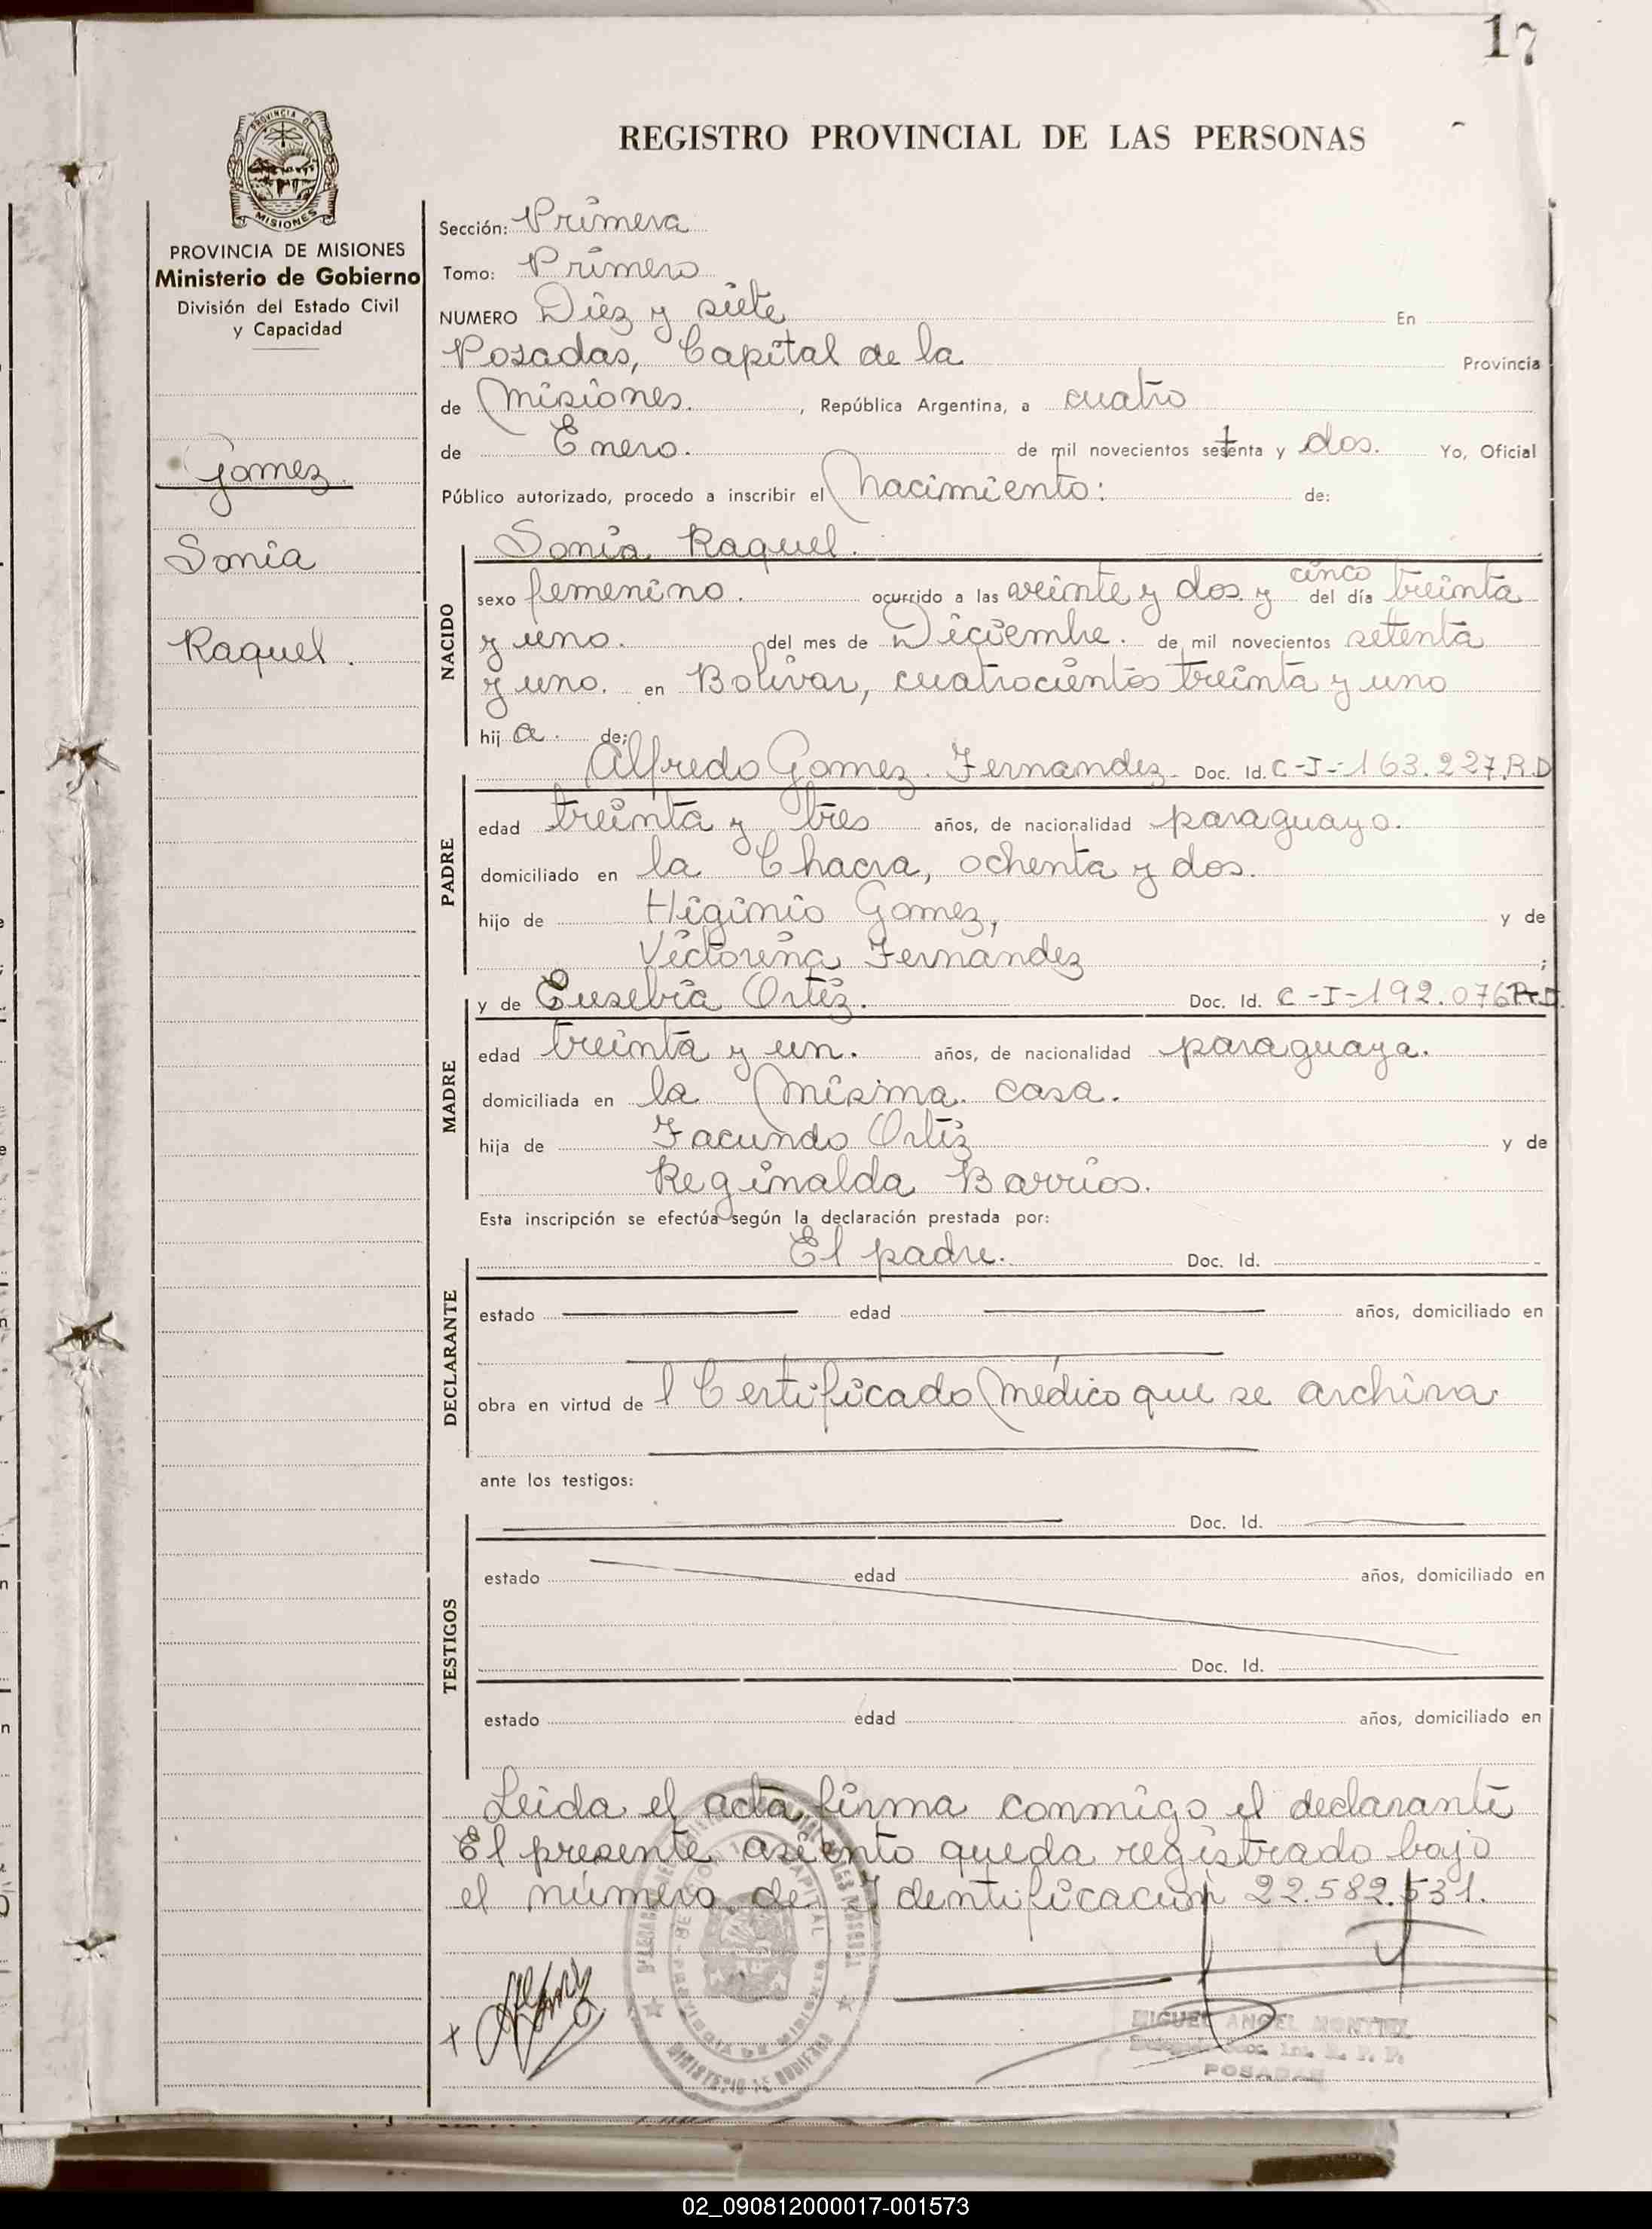 17
REGISTRO PROVINCIAL DE LAS PERSONAS
PROVINCIA DE
MISIONES
PROVINCIA DE MISIONES
Ministerio de Gobierno
División del Estado Civil
y Capacidad
Gomez.
Sonia
Raquel.
Sección: Primera
Tomo: Primero
NUMERO Diez y siete En
Posadas, Capital de la Provincia
de Misiones. , República Argentina, a cuatro
de Enero. de mil novecientos setenta y dos. Yo, Oficial
Público autorizado, procedo a inscribir el Nacimiento: de:
NACIDO
Sonia Raquel.
sexo femenino. ocurrido a las veinte y dos y cinco del día treinta
y uno. del mes de Diciembre. de mil novecientos setenta
y uno. en Bolivar, cuatrocientos treinta y uno
hij a. de:
PADRE
Alfredo Gomez. Fernandez Doc. Id. C-I-163.227.R.D
edad treinta y tres años, de nacionalidad paraguayo.
domiciliado en la Chacra, ochenta y dos.
hijo de Higinio Gomez, y de
Victorina Fernandez ;
MADRE
y de Eusebia Ortiz. Doc. Id. C-I-192.076
edad treinta y un. años, de nacionalidad paraguaya.
domiciliada en la misma casa.
hija de Facundo Ortiz y de
Reginalda Barrios.
Esta inscripción se efectúa según la declaración prestada por:
DECLARANTE
El padre. Doc. Id.
estado edad años, domiciliado en
obra en virtud de l Certificado Médico que se archiva
ante los testigos:
TESTIGOS
Doc. Id.
estado edad años, domiciliado en
Doc. Id.
estado edad años, domiciliado en
Leida el acta, firma conmigo el declarante
El presente asiento queda registrado bajo
el número de Identificacion 22.582.531.
MINISTERIO DE GOBIERNO
MIGUEL ANGEL
POSADAS
02_090812000017-001573